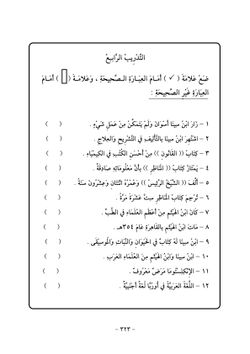 التَّدْرِيبُ الرَّابِعُ
ضَعْ عَلَامَةَ ( ✓ ) أَمَامَ العِبَارَةِ الصَّحِيحَةِ ، وَعَلَامَةَ ( ) أَمَامَ
العِبَارَةِ غَيْرِ الصَّحِيحَةِ :
١ - زَارَ ابْنُ سِينَا أَسْوَانَ وَلَمْ يَتَمَكَّنْ مِنْ عَمَلِ شَيْءٍ . ( )
٢ - اشْتَهَرَ ابْنُ سِينَا بِالتَّأْلِيفِ فِي التَّشْرِيحِ وَالعِلَاجِ . ( )
٣ - كِتَابُ (( القَانُونِ )) مِنْ أَحْسَنِ الكُتُبِ فِي الكِيمْيَاءِ . ( )
٤ - يَمْتَازُ كِتَابُ (( المَنَاظِرِ )) بِأَنَّ مَعْلُومَاتِهِ صَادِقَةٌ . ( )
٥ - أَلَّفَ (( الشَّيْخُ الرَّئِيسُ )) وَعُمْرُهُ اثْنَتَانِ وَعِشْرُونَ سَنَةً . ( )
٦ - تُرْجِمَ كِتَابُ المَنَاظِرِ سِتَّ عَشْرَةَ مَرَّةً . ( )
٧ - كَانَ ابْنُ الهَيْثَمِ مِنْ أَعْظَمِ العُلَمَاءِ فِي الطِّبِّ . ( )
٨ - مَاتَ ابْنُ الهَيْثَمِ بِالقَاهِرَةِ عَامَ ٣٥٤هـ . ( )
٩ - ابْنُ سِينَا لَهُ كِتَابٌ فِي الحَيَوَانِ وَالنَّبَاتِ وَالمُوسِيقَى . ( )
١٠ - ابْنُ سِينَا وَابْنُ الهَيْثَمِ مِنَ العُلَمَاءِ العَرَبِ . ( )
١١ - الإِنْكِلِسْتُومَا مَرَضٌ مَعْرُوفٌ . ( )
١٢ - اللُّغَةُ العَرَبِيَّةُ فِي أُورُبَّا لُغَةٌ أَجْنَبِيَّةٌ . ( )
- ٣٢٣ -